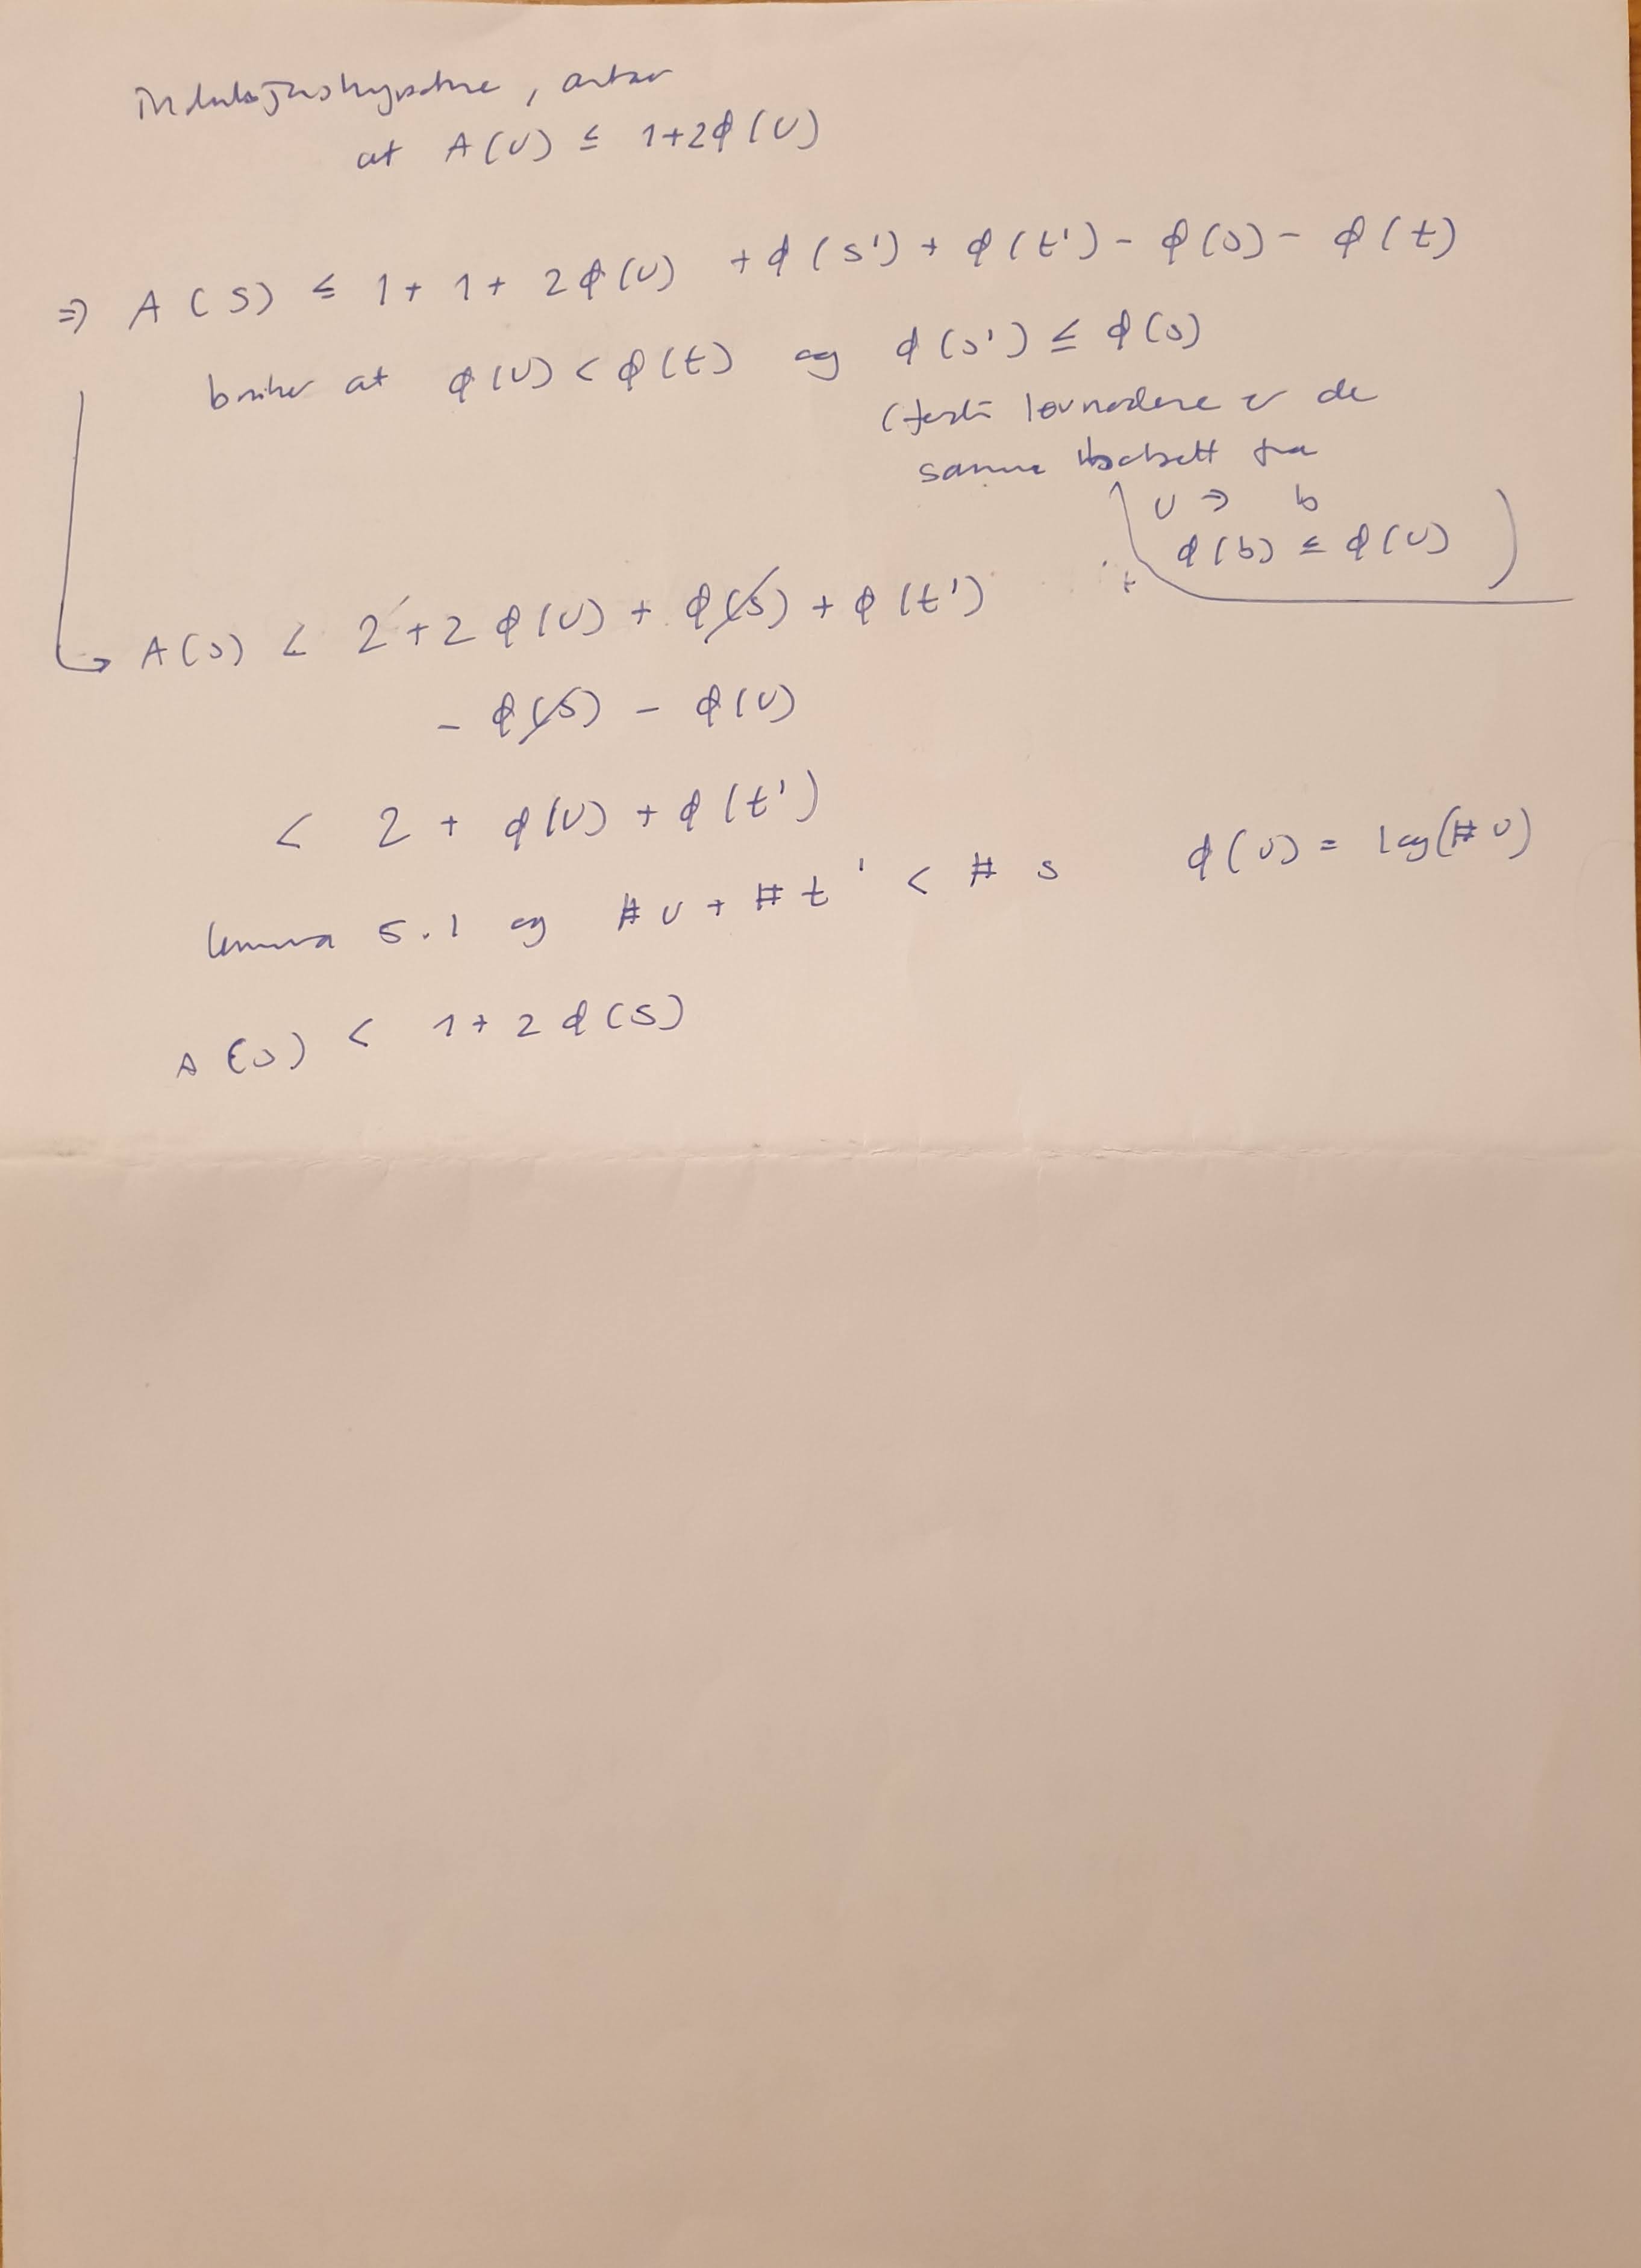 Induksjonshypotese, antar
at A(U) ≤ 1+2ϕ(U)
⇒ A(S) ≤ 1+1+2ϕ(U) +ϕ(s')+ϕ(t')-ϕ(s)-ϕ(t)
bruker at ϕ(U) < ϕ(t) og ϕ(s') ≤ ϕ(s)
(fordi løvnodene er de
samme bortsett fra
U ⇒ b
ϕ(b) ≤ ϕ(U))
A(s) < 2+2ϕ(U)+ϕ(s)+ϕ(t')
-ϕ(s)-ϕ(U)
< 2+ϕ(U)+ϕ(t')
lemma 5.1 og #U+#t' < #s ϕ(U)=log(#U)
A(s) < 1+2ϕ(S)